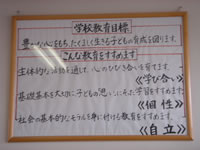 学校教育目標
豊かな心をもち、たくましく生きる子どもの育成を図ります。
こんな教育をすすめます
主体的な活動を通して、心のひびき合いを育てます。
≪学び合い≫
基礎基本を大切に子どもの思いにそった学習をすすめます。
≪個性≫
社会の基本的なモラルを身に付ける教育をすすめます。
≪自立≫